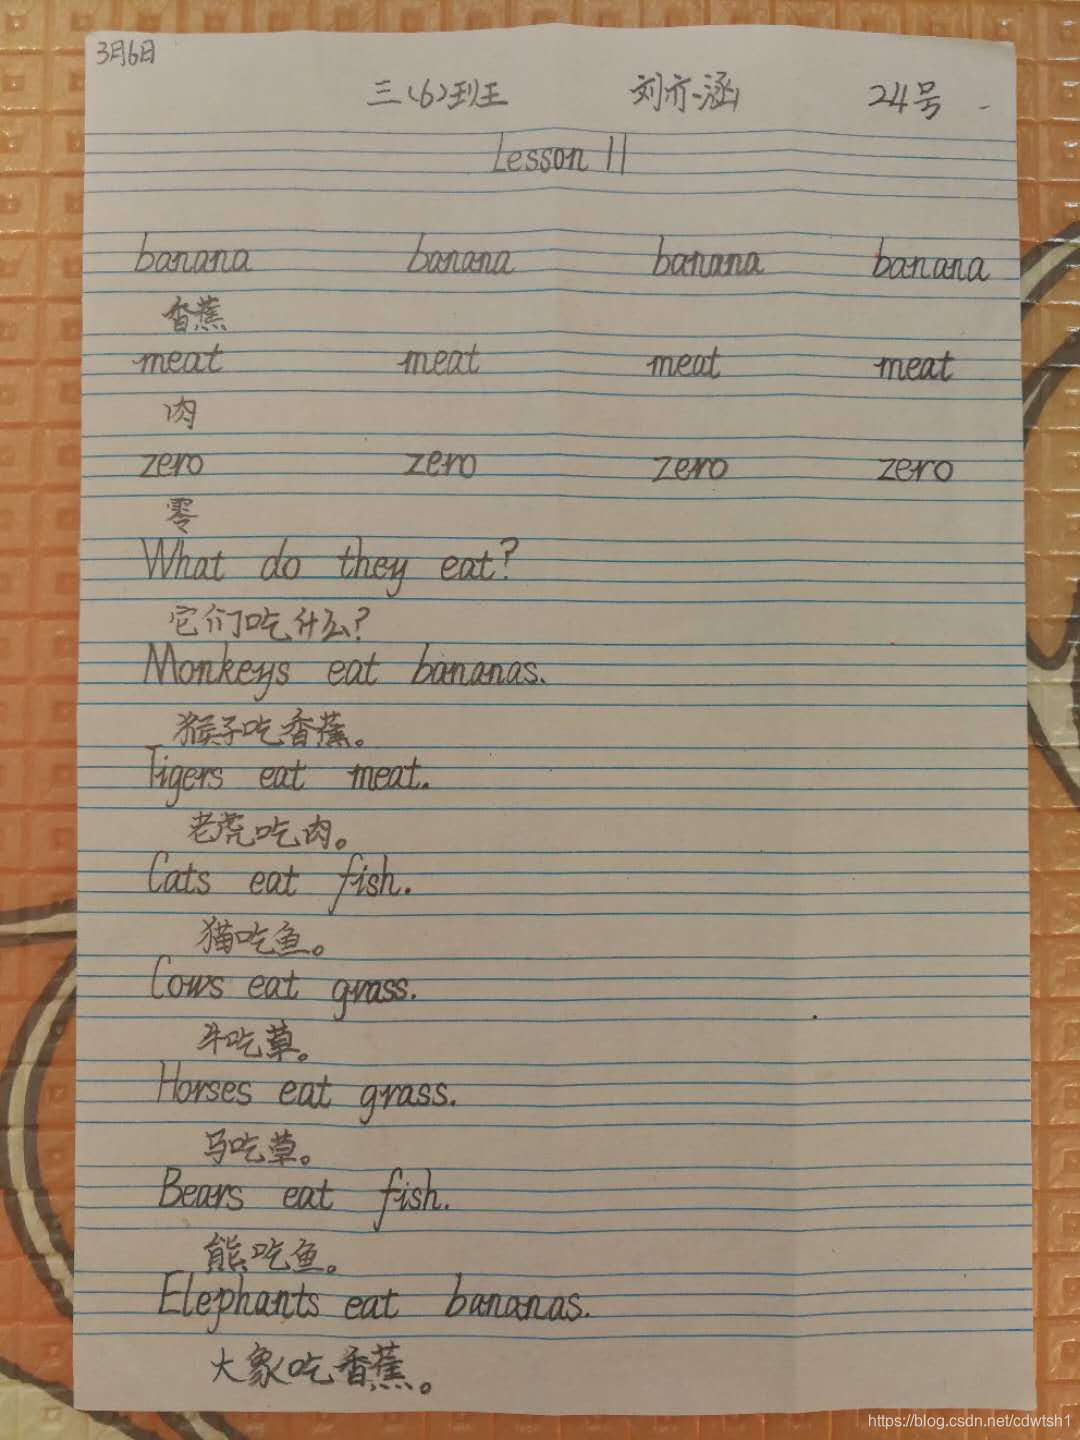 3月6日
三(6)班 刘亦涵 24号
Lesson 11
banana banana banana banana
香蕉
meat meat meat meat
肉
zero zero zero zero
零
What do they eat?
它们吃什么?
Monkeys eat bananas.
猴子吃香蕉。
Tigers eat meat.
老虎吃肉。
Cats eat fish.
猫吃鱼。
Cows eat grass.
牛吃草。
Horses eat grass.
马吃草。
Bears eat fish.
熊吃鱼。
Elephants eat bananas.
大象吃香蕉。
https://blog.csdn.net/cdwtsh1